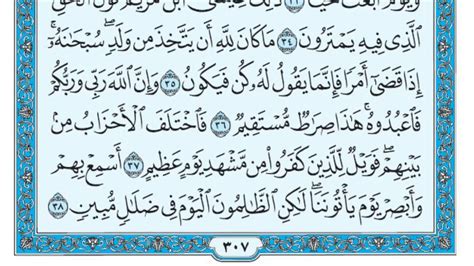 وَيَوْمَ أُبْعَثُ حَيًّا ٣٣ ذَٰلِكَ عِيسَى ابْنُ مَرْيَمَ قَوْلَ الْحَقِّ
الَّذِي فِيهِ يَمْتَرُونَ ٣٤ مَا كَانَ لِلَّهِ أَن يَتَّخِذَ مِن وَلَدٍ سُبْحَانَهُ
إِذَا قَضَىٰ أَمْرًا فَإِنَّمَا يَقُولُ لَهُ كُن فَيَكُونُ ٣٥ وَإِنَّ اللَّهَ رَبِّي وَرَبُّكُمْ
فَاعْبُدُوهُ هَٰذَا صِرَاطٌ مُّسْتَقِيمٌ ٣٦ فَاخْتَلَفَ الْأَحْزَابُ مِن
بَيْنِهِمْ فَوَيْلٌ لِّلَّذِينَ كَفَرُوا مِن مَّشْهَدِ يَوْمٍ عَظِيمٍ ٣٧ أَسْمِعْ بِهِمْ
وَأَبْصِرْ يَوْمَ يَأْتُونَنَا لَٰكِنِ الظَّالِمُونَ الْيَوْمَ فِي ضَلَالٍ مُّبِينٍ ٣٨
٣٠٧